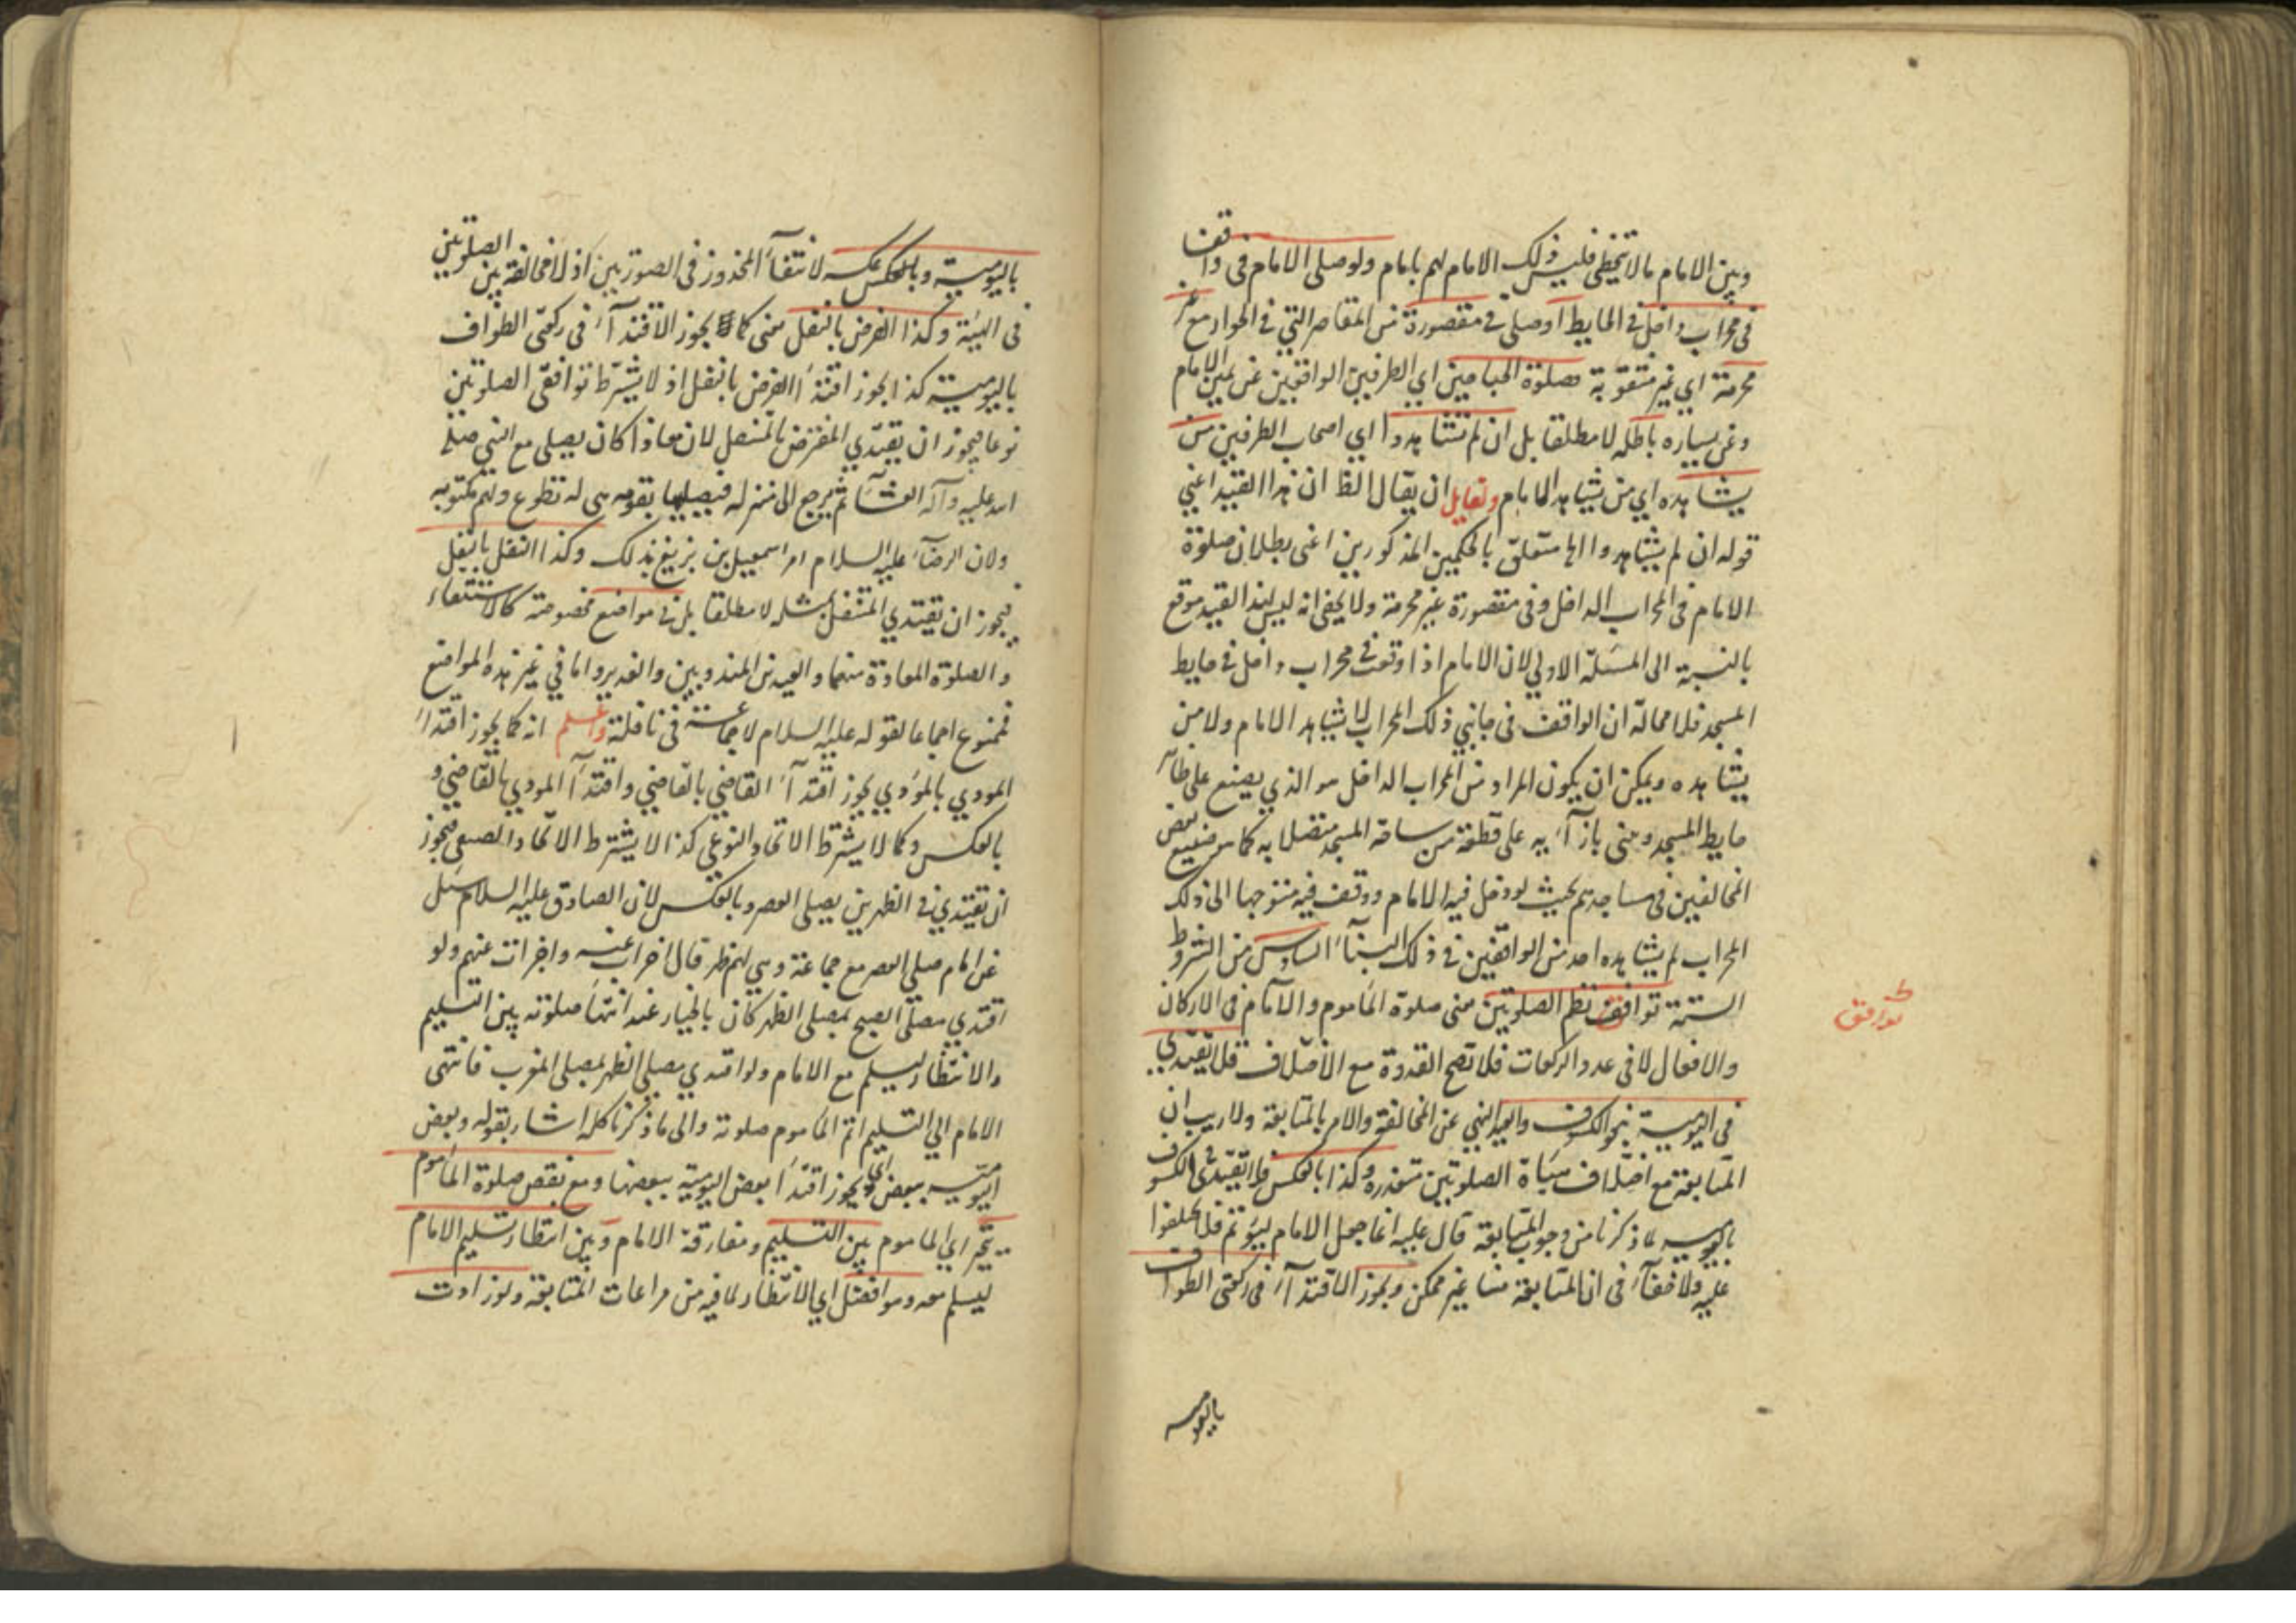 وبين الامام مالا يتخطى فليس ذلك الامام لهم بامام ولو صلى الامام في واقفا
في محراب داخل في الحايط او صلى في مقصورة من المقاصر التي في الجوار مع غير
مخرمة اي غير مثقوبة فصلوة الجناحين اي الطرفين الواقفين عن يمين الامام
وعن يساره باطلة لا مطلقا بل ان لم يشاهدوا اي اصحاب الطرفين من
يشاهده اي من يشاهد الامام ولقايل ان يقال الظ ان هذا القيد اعني
قوله ان لم يشاهدوا الخ متعلق بالحكمين المذكورين اعنى بطلان صلوة
الامام في المحراب الداخل وفي مقصورة غير مخرمة ولا يخفى انه ليس لهذا القيد موقع
بالنسبة الى المسئلة الاولى لان الامام اذا وقف في محراب داخل في حايط
المسجد فلا محالة ان الواقف في جانبي ذلك المحراب لا يشاهد الامام ولا من
يشاهده ويمكن ان يكون المراد من المحراب الداخل هو الذي يصنع على
حايط المسجد ومبنى بازآئه على قطعة من ساحة المسجد متصلا به كما هو صنيع بعض
المخالفين في مساجدهم بحيث لو دخل فيه الامام ووقف فيه متوجها الى ذلك
المحراب لم يشاهده احد من الواقفين في ذلك البنآء السادس من الشروط
الستة توافق نظم الصلوتين معنى صلوة المأموم والامام في الاركان
توافق
والافعال لا في عدد الركعات فلا تصح القدوة مع الاختلاف فلا يقتدي
في اليومية بنحو الكسوف والعيد للنهي عن المخالفة والامر بالمتابعة ولا ريب ان
المتابعة مع اختلاف هيأة الصلوتين متعذرة وكذا بالعكس فلا يقتدى في الكسوف
باليومية لما ذكرنا من وجوب المتابعة قال عليه انما جعل الامام ليؤتم فلا تختلفوا
عليه ولا خفآء في ان المتابعة هنا غير ممكن ويجوز الاقتدآء في ركعتي الطواف
باليومية
باليومية وبالعكس لانتفآء المحذور في الصورتين اذ لا مخالفة بين الصلوتين
في الهيئة وكذا الفرض بالنفل معنى كما يجوز الاقتدآء في ركعتي الطواف
باليومية كذا يجوز اقتدآء الفرض بالنفل اذ لا يشترط توافق الصلوتين
نوعا فيجوز ان يقتدي المفترض بالمتنفل لان معاذا كان يصلى مع النبي صلى
الله عليه وآله العشآء ثم يرجع الى منزله فيصليها بقومه هى له تطوع ولهم مكتوبة
ولان الرضآ عليه السلام امر اسمعيل بن بزيع بذلك وكذا النفل بالنفل
فيجوز ان يقتدي المتنفل بمثله لا مطلقا بل في مواضع مخصوصة كالاستسقاء
والصلوة المعادة منهما والعيدين المندوبين والغدير واما في غير هذه المواضع
فممنوع اجماعا لقوله عليه السلام لا جماعة في نافلة واعلم انه كما يجوز اقتدآء
المودي بالمؤدي يجوز اقتدآء القاضي بالقاضي واقتدآء المودي بالقاضي و
بالعكس وكما لا يشترط الاتحاد النوعي كذا لا يشترط الاتحاد الصنفي فيجوز
ان يقتدي في الظهر بمن يصلى العصر وبالعكس لان الصادق عليه السلام سئل
عن امام صلى العصر مع جماعة وهي لهم ظهر قال اجزأت عنه واجزأت عنهم ولو
اقتدي مصلى الصبح بمصلى الظهر كان بالخيار عند انتهآء صلوته بين التسليم
والانتظار ليسلم مع الامام ولو اقتدي مصلي الظهر بمصلى المغرب فانتهى
الامام الى التسليم اتم المأموم صلوته والى ما ذكرنا كله اشار بقوله وبعض
اليومية ببعض اي ويجوز اقتدآء بعض اليومية ببعضها ومع نقص صلوة المأموم
يتخير اي المأموم بين التسليم ومفارقة الامام وبين انتظار تسليم الامام
ليسلم معه وهو افضل اي الانتظار لما فيه من مراعات المتابعة ولو زادت